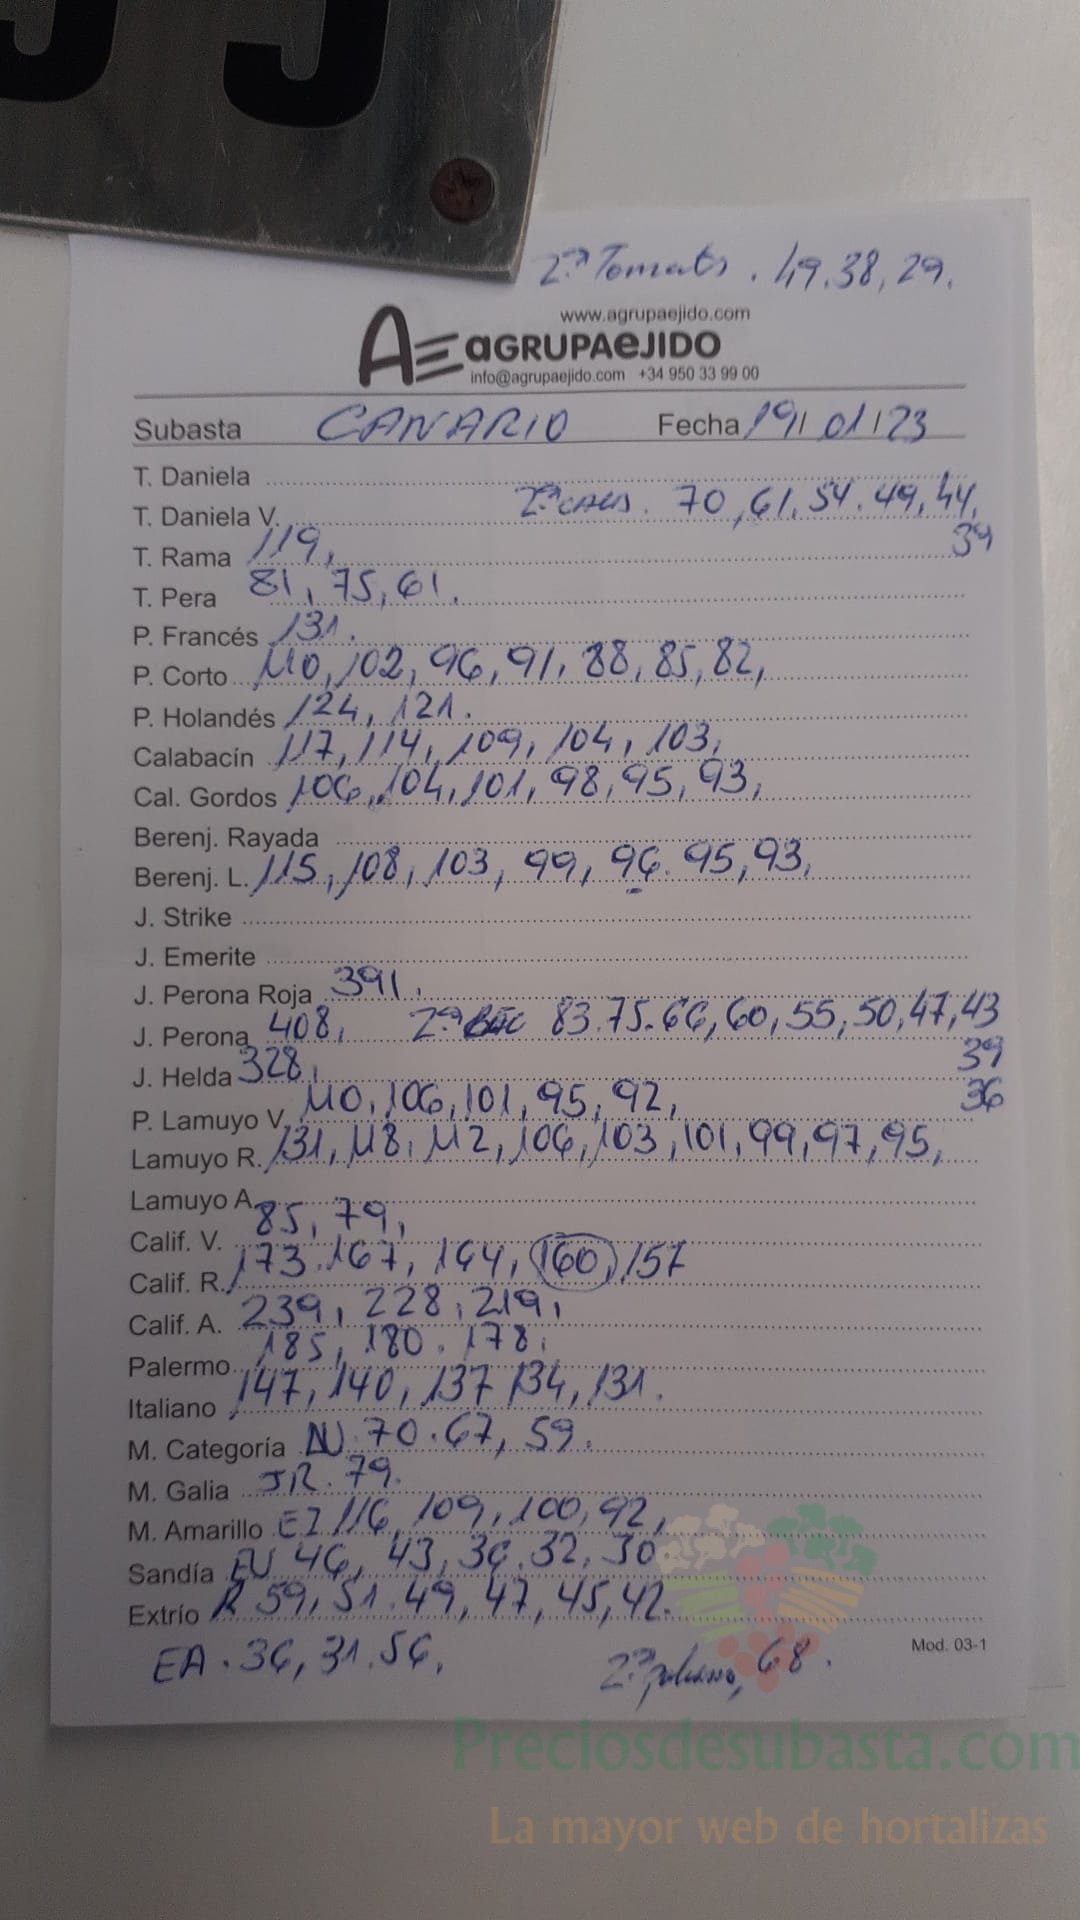 2ª Tomates. 49, 38, 29.
www.agrupaejido.com
AE aGRUPAeJIDO
info@agrupaejido.com +34 950 33 99 00
Subasta CANARIO Fecha 19/01/23
T. Daniela
2ª CALIS. 70, 61, 54. 49, 44,
T. Daniela V.
39
T. Rama 119,
T. Pera 81, 75, 61.
P. Francés 131.
P. Corto 110, 102, 96, 91, 88, 85, 82,
P. Holandés 124, 121.
Calabacín 117, 114, 109, 104, 103,
Cal. Gordos 106, 104, 101, 98, 95, 93,
Berenj. Rayada
Berenj. L. 115, 108, 103, 99, 96. 95, 93,
J. Strike
J. Emerite
J. Perona Roja 391.
J. Perona 408, 2ª 83. 75. 66, 60, 55, 50, 47, 43
39
J. Helda 328,
36
P. Lamuyo V. 110, 106, 101, 95, 92,
Lamuyo R. 131, 118, 112, 106, 103, 101, 99, 97, 95,
Lamuyo A.
Calif. V. 85, 79,
Calif. R. 173. 167, 164, 160, 157
Calif. A. 239, 228, 219,
Palermo 185, 180. 178,
Italiano 147, 140, 137 134, 131.
M. Categoría 70. 67, 59.
M. Galia JR. 79.
M. Amarillo EI 116, 109, 100, 92,
Sandía EV 46, 43, 36. 32, 30
Extrío R 59, 51. 49, 47, 45, 42.
Mod. 03-1
EA. 36, 31. 56,
2ª 68.
Preciosdesubasta.com
La mayor web de hortalizas